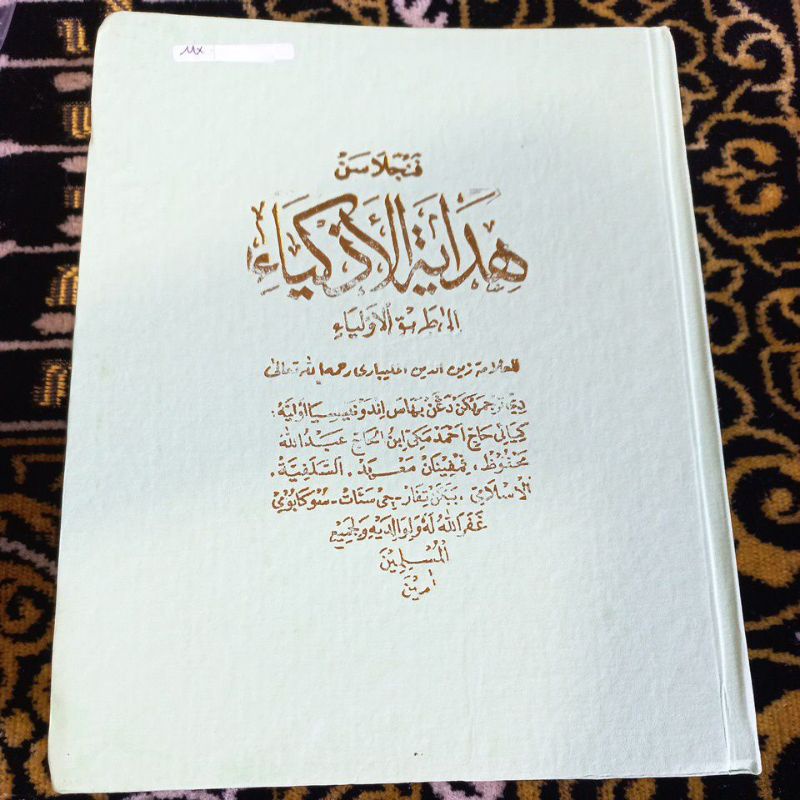 فنجلاسن
هِدَايَةُ الْأَذْكِيَاءِ
إِلَى طَرِيقِ الْأَوْلِيَاءِ
للعلامة زين الدين المليباري رحمه الله تعالى
دي ترجمهكن دغن بهاس اندونيسيا اوليه :
كياهي حاج احمد مكي ابن الحاج عبد الله
محفوظ . فمفينان معهد . السلفية .
الاسلامي . ببكن تيفار - چي سئات - سوكابومي
غفر الله له ولوالديه ولجميع
المسلمين
امين